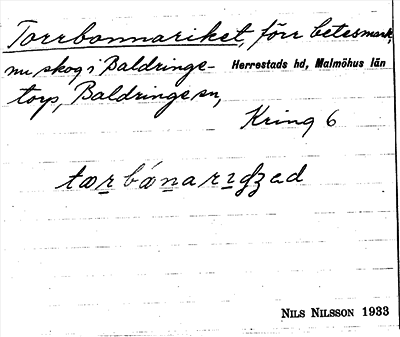 Torrbonnariket, förr betesmark,
nu skog i Baldringe- Herrestads hd, Malmöhus län
torp, Baldringe sn,
Kring 6
NILS NILSSON 1933